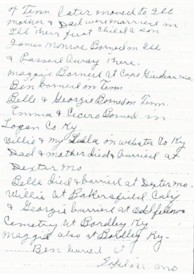 & Tenn later moved to Ill
Mother & Dad were married in
Ill their first child a son
James Monroe Borned on Ill
& Passed Away there.
Maggie Borned at Cape Girardeau Mo.
Ben borned on Tenn.
Belle & Georgie Borned on Tenn.
Emma & Cicero Borned in
Logan Co Ky
Willie & my Della on Webster Co Ky.
Dad & mother died & burried at
Dexter Mo.
Belle died & burried at Dexter Mo.
Willie at Bakersfield Caly
& Georgie burried at Oddfellows
Cemetery at Bordley Ky
Maggie also at Bordley Ky.
Ben buried
Mo.